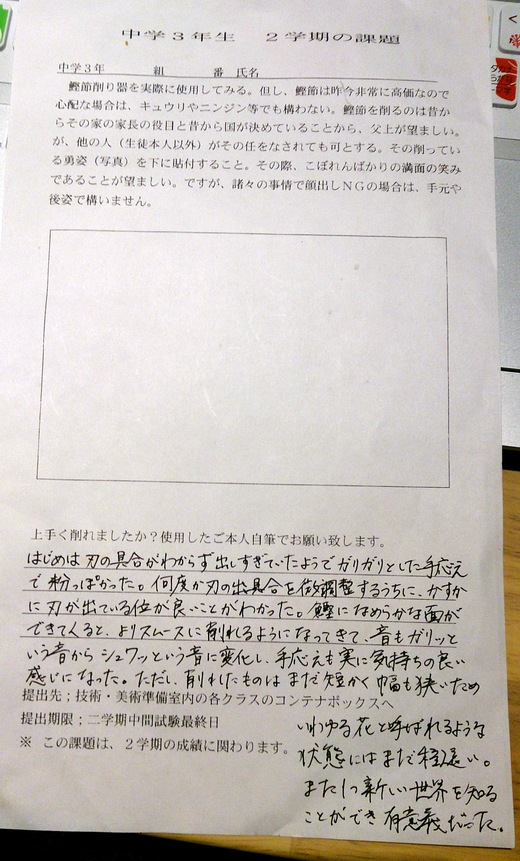 中学３年生　２学期の課題
中学３年　　　組　　　番　氏名
鰹節削り器を実際に使用してみる。但し、鰹節は昨今非常に高価なので
心配な場合は、キュウリやニンジン等でも構わない。鰹節を削るのは昔か
らその家の家長の役目と昔から国が決めていることから、父上が望ましい。
が、他の人（生徒本人以外）がその任をなされても可とする。その削ってい
る勇姿（写真）を下に貼付すること。その際、こぼれんばかりの満面の笑み
であることが望ましい。ですが、諸々の事情で顔出しＮＧの場合は、手元や
後姿で構いません。
上手く削れましたか？使用したご本人自筆でお願い致します。
はじめは刃の具合がわからず出しすぎていたようでガリガリとした手応え
で粉っぽかった。何度か刃の出具合を微調整するうちに、かすか
に刃が出ている位が良いことがわかった。鰹になめらかな面が
できてくると、よりスムースに削れるようになってきて、音もガリッと
いう音からシュワッという音に変化し、手応えも実に気持ちの良い
感じになった。ただし、削れたものはまだ短かく幅も狭いため
提出先；技術・美術準備室内の各クラスのコンテナボックスへ
提出期限；二学期中間試験最終日
※ この課題は、２学期の成績に関わります。
いわゆる花と呼ばれるような
状態にはまだ程遠い。
また1つ新しい世界を知る
ことができ有意義だった。